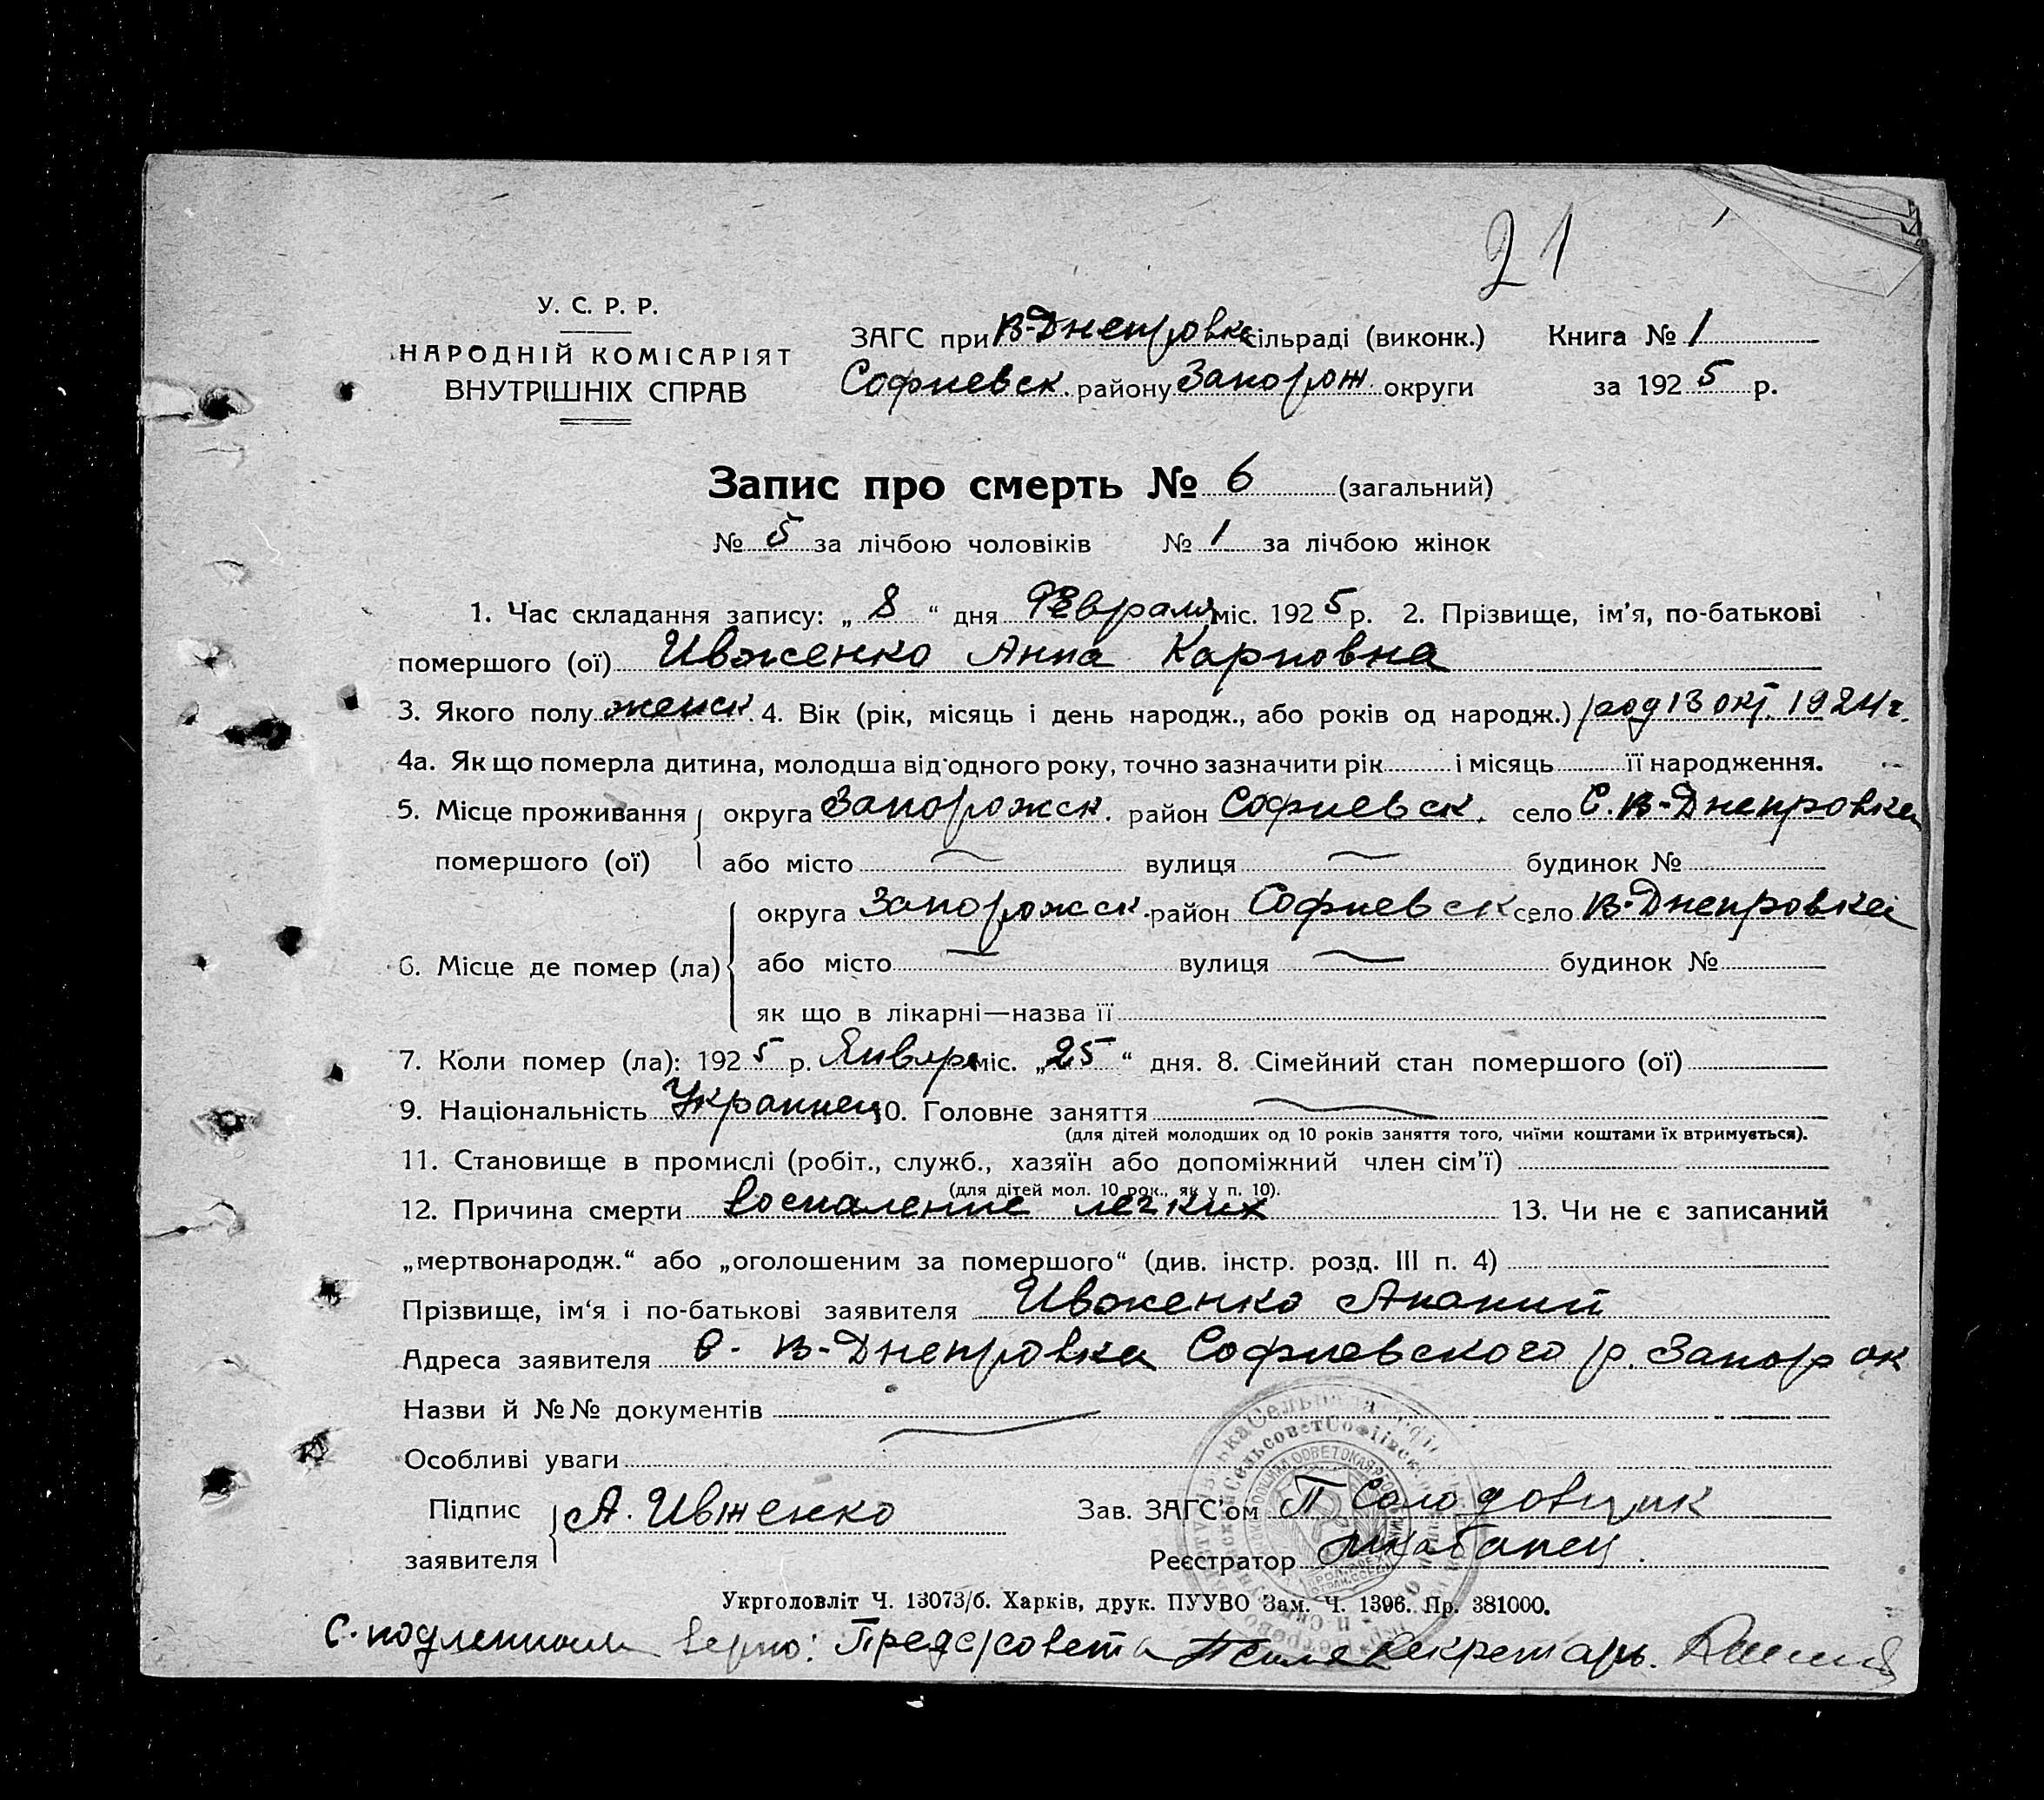 21
У. С. Р. Р.
НАРОДНІЙ КОМІСАРІЯТ
ВНУТРІШНІХ СПРАВ
ЗАГС при В-Днепровке сільраді (виконк.) Книга № 1
Софиевск. району Запорож. округи за 1925 р.
Запис про смерть № 6 (загальний)
№ 5 за лічбою чоловіків № 1 за лічбою жінок
1. Час складання запису: „ 8 “ дня Февраля міс. 1925 р. 2. Прізвище, ім’я, по-батькові
помершого (ої) Ивженко Анна Карповна
3. Якого полу женск. 4. Вік (рік, місяць і день народж., або років од народж.) род 13 окт. 1924 г.
4а. Як що померла дитина, молодша від одного року, точно зазначити рік і місяць її народження.
5. Місце проживання округа Запорожск. район Софиевск. село С. В-Днепровке
помершого (ої) або місто — вулиця — будинок №
округа Запорожск. район Софиевск село В-Днепровке
6. Місце де помер (ла) або місто — вулиця — будинок №
як що в лікарні—назва її
7. Коли помер (ла): 1925 р. Января міс. „25“ дня. 8. Сімейний стан помершого (ої)
9. Національність Украинец 10. Головне заняття —
(для дітей молодших од 10 років заняття того, чиїми коштами їх втримується).
11. Становище в промислі (робіт., служб., хазяїн або допоміжний член сім’ї)
(для дітей мол. 10 рок., як у п. 10).
12. Причина смерти воспаление легких 13. Чи не є записаний
„мертвонародж.“ або „оголошеним за помершого“ (див. інстр. розд. III п. 4)
Прізвище, ім’я і по-батькові заявителя Ивженко Ананий
Адреса заявителя с. В-Днепровка Софиевского р. Запор ок
Назви й №№ документів
Особливі уваги
Підпис А. Ивженко Зав. ЗАГС’ом П Солодовник
заявителя Реєстратор
Укрголовліт Ч. 13073/б. Харків, друк. ПУУВО Зам. Ч. 1396. Пр. 381000.
С подленным верно: Предс/совета Секретарь.